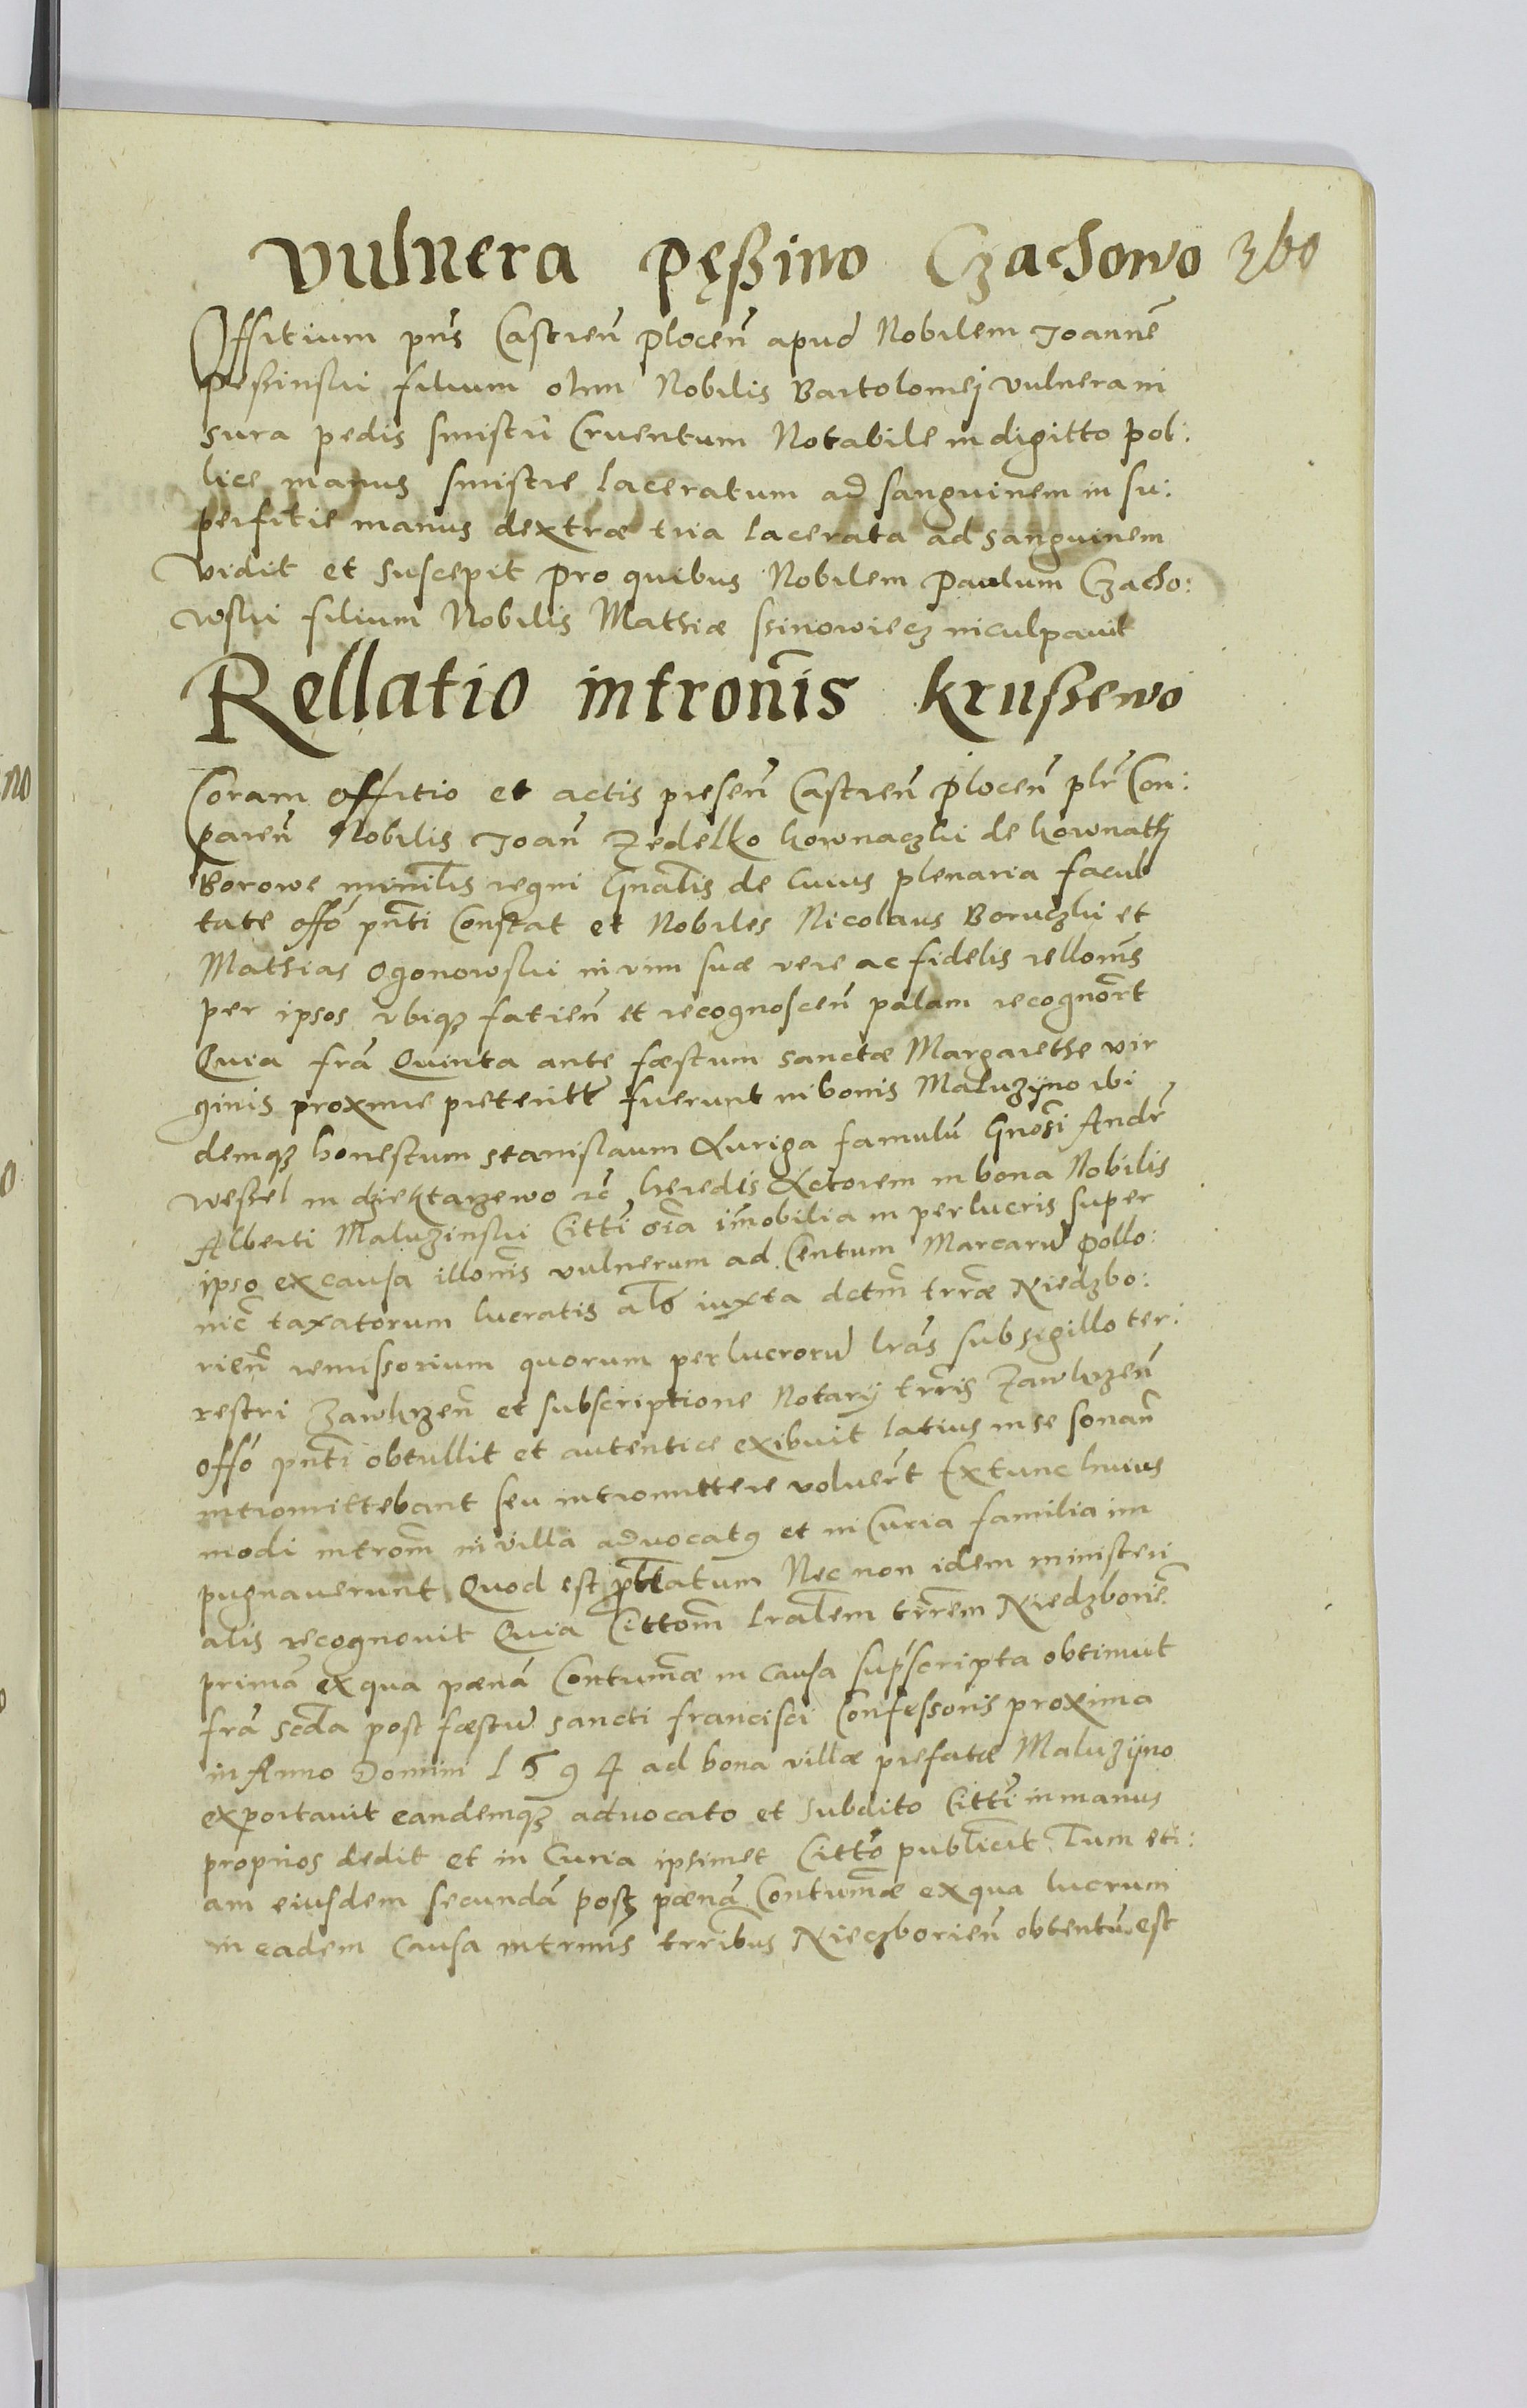 Vulnera Pęßino Czachowo 360
Offitium pñs Castreñ Ploceñ apud Nobilem Joannẽ
Peßinski filium olim Nobilis Bartolomej vulnera in
sura pedis sinistri Cruentum Notabile in digitto pol:
lice manus sinistre laceratum ad sanguinem in su:
perfitie manus dextræ tria lacerata ad sanguinem
vidit et suscepit pro quibus Nobilem Paulum Czacho:
wski filium Nobilis Mathiæ ssinowiecz inculpavit
Rellatio intromis̃ krußewo
Coram offitio et actis preseñ Castreñ Ploceñ plr̃ Con:
pareñ Nobilis Joañ Zedelko kownaczki de kownathj
Borowe minilis̃ regni Gnalis̃ de cuius plenaria facul
tate offo pñti Constat et Nobiles Nicolaus Boruczki et
Mathias Ogonowski in vim suæ vere ac fidelis rellonis̃
per ipsos ubiqʒ fatieñ et recognosceñ palam recognor̃t
Quia frã Quinta ante fæstum sanctæ Margarethe vir
ginis proxime preteritt̃ fuerunt in bonis Maluzÿno ibi
demqʒ honestum Stanislaum Auriga famulũ Gnosi̇̃ Andr̃
Weßel in dziektarzewo rc̃ heredis Actorem in bona Nobilis
Alberti Maluzinski Citti̇̃ oĩa im̃obilia in perlucris super
ipso ex causa illonis̃ vulnerum ad Centum Marcarũ Pollo:
nic̃ taxatorum lucratis als̃ iuxta dctm̃ trræ̃ Niedzbo:
rieñ remissorium quorum perlucrorũ lrãs sub sigillo ter:
restri Zawkrzeñ et subscriptione Notarÿ trris̃ Zawkrzeñ
offo pñti obtullit et autentice exibuit latius in se sonañ
intromittebant seu intromittere voluer̃t Ex tunc huius
modi introm̃ in villa advocatꝰ et in Curia familia im
pugnaverunt Quod est pr̃tt̃atum Nec non idem ministeri
alis recognovit Quia Cittom̃ lralem̃ trrem̃ Niedzborieñ
primã ex qua pænã Contumæ̃ in causa sup̃scripta obtinuit
frã scdã post fæstũ sancti francisci Confessoris proxima
in Anno Domini 1594 ad bona villæ prefatæ Maluzÿno
exportavit eandemqʒ advocato et subdito Citti̇̃ in manus
proprios dedit et in Curia ipsimet Cittȯ̃ publicit̃ Tum eti:
am eiusdem secundã postʒ pænã Contumæ̃ ex qua lucrum
in eadem causa in trmis̃ trribus̃ Nieczborieñ obtentũ est